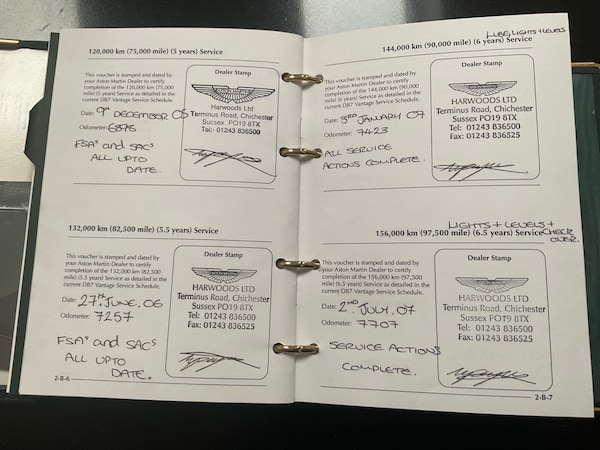 120,000 km (75,000 mile) (5 years) Service
This voucher is stamped and dated by
your Aston Martin Dealer to certify
completion of the 120,000 km (75,000
mile) (5 years) Service as detailed in the
current DB7 Vantage Service Schedule.
Date: 9th DECEMBER 05
Odometer: 6875
FSAs and SACs
ALL UPTO
DATE.
Dealer Stamp
HARWOODS Ltd
Terminus Road, Chichester
Sussex PO19 8TX
Tel:- 01243 836500
132,000 km (82,500 mile) (5.5 years) Service
This voucher is stamped and dated by
your Aston Martin Dealer to certify
completion of the 132,000 km (82,500
mile) (5.5 years) Service as detailed in the
current DB7 Vantage Service Schedule.
Date: 27th JUNE. 06
Odometer: 7257
FSAs and SACs
ALL UPTO
DATE.
Dealer Stamp
HARWOODS LTD
Terminus Road, Chichester
Sussex PO19 8TX
Tel: 01243 836500
Fax: 01243 836525
2-B-6
LUBE, LIGHTS + LEVELS
144,000 km (90,000 mile) (6 years) Service
This voucher is stamped and dated by
your Aston Martin Dealer to certify
completion of the 144,000 km (90,000
mile) (6 years) Service as detailed in the
current DB7 Vantage Service Schedule.
Date: 3RD JANUARY 07
Odometer: 7423
ALL SERVICE
ACTIONS COMPLETE.
Dealer Stamp
HARWOODS LTD
Terminus Road, Chichester
Sussex PO19 8TX
Tel: 01243 836500
Fax: 01243 836525
LIGHTS + LEVELS +
156,000 km (97,500 mile) (6.5 years) Service CHECK
OVER.
This voucher is stamped and dated by
your Aston Martin Dealer to certify
completion of the 156,000 km (97,500
mile) (6.5 years) Service as detailed in the
current DB7 Vantage Service Schedule.
Date: 2nd JULY. 07
Odometer: 7707
SERVICE ACTIONS
COMPLETE.
Dealer Stamp
HARWOODS LTD
Terminus Road, Chichester
Sussex PO19 8TX
Tel: 01243 836500
Fax: 01243 836525
2-B-7